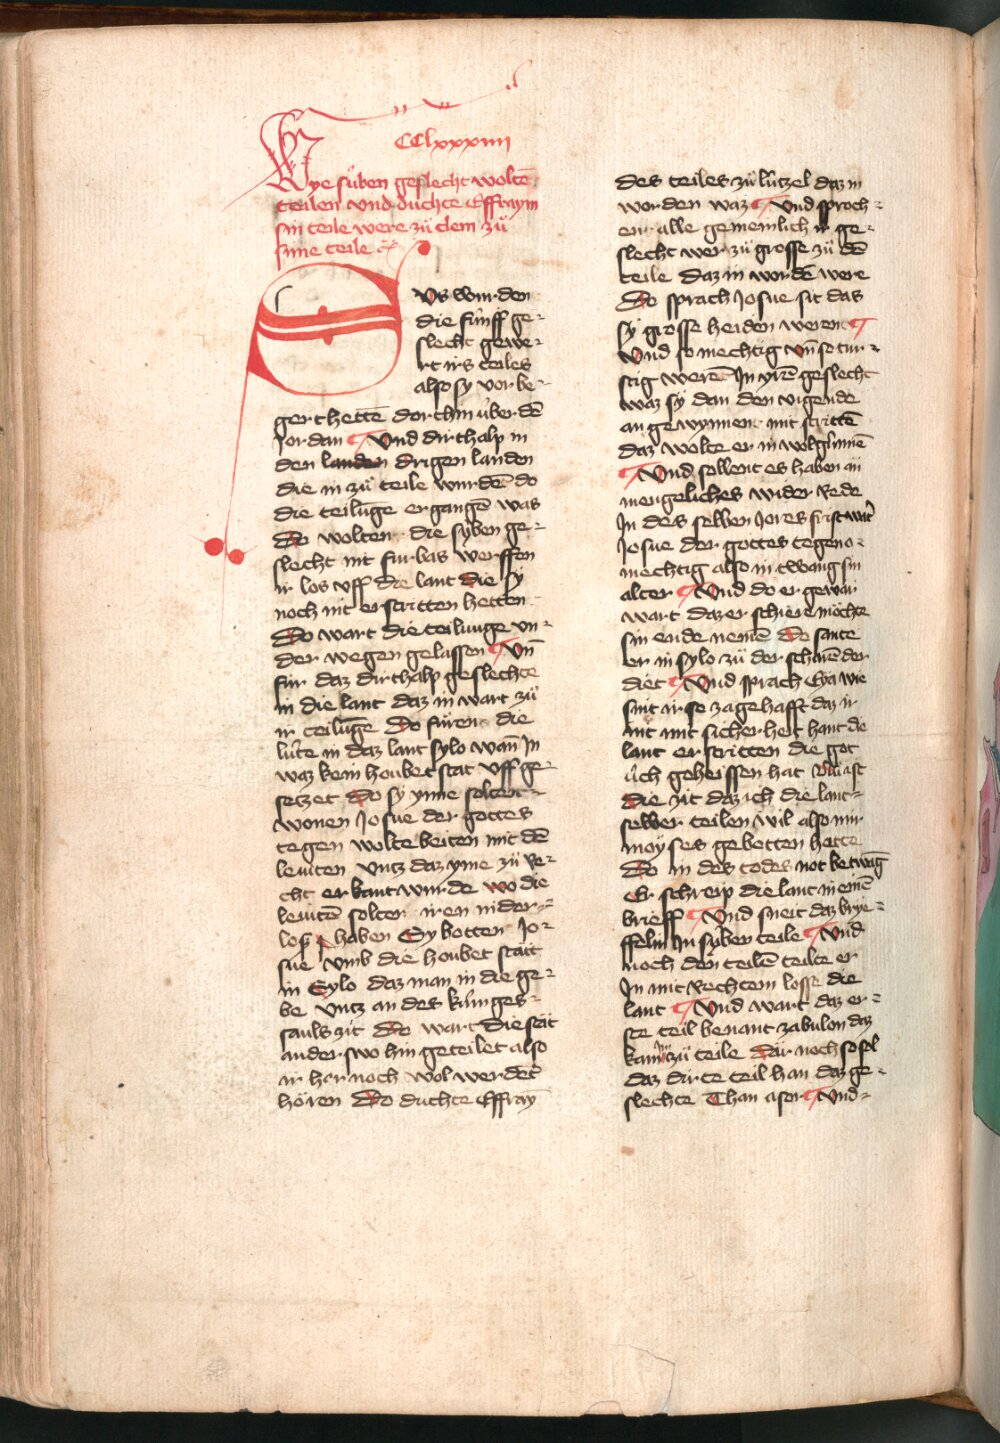 CClxxxiiii
Wye süben geslecht wolte
teilen vnd duchte Effraym
sin teile were zü clem zü
sime teile
SVs wurden
die fünff ge-
slecht gewe-
rt irs teiles
also sy vor be-
gert hettē dort hin über dē
Jordan Vnd dirthalp in
den landen drigen landen
die in zü teile wurdēt do
die teiluge ergangē was
Do wolten die syben ge-
slecht nit furbas werffen
ir los vff die lant die sy
noch nit erstritten hetten
Do wart die teilunge vn-
der wegen gelassen Vn̄
für daz dirthalp geslechte
in die lant daz in wart zü
ir teilūge Do füren die
lüte in daz lant sylo wan̄ In
waz kein houbet stat vff ge-
setzet Do sy ynne solten
wonen Josue der gottes
tegen wolte beiten mit dē
leuiten vntz daz yme zü re-
cht erkant wurde wo die
leuitē solten iren nider-
loß haben Sy botten Jo-
sue vmb die houbet statt
in Sylo daz man in die ge-
be vntz an des küniges
sauls zit Do wart die stat
anderswo hin geteilet also
ir her noch wol werdēt
hören Do duchte Effray
des teiles zü lützel daz in
worden waz Vnd sproch-
en alle gemeinlich ir ge-
slecht wer zü grosse zü dē
teile daz in wordē were
Do sprach Josue sit das
sy grosse heiden weren
Vnd so mechtig vn̄ so tur-
stig werēt In yrē geslecht
waz sy dan den vigende
an gewynnent mit strittē
daz wolte er in wol günnē
Vnd sollent es haben an
mengeliches wider rede
In des selben Jores frist wart
Josue der gottes tegen o-
mechtig also in twang sin
alter Vnd do er gewar
wart daz er schiere möchte
sin ende nemē Do sante
er in sylo zü der scharē der
diet Vnd sprach Eya wie
sint ir so zagehafft daz ir
nit mit sicherheit hant die
lant erstritten die got
üch geheissen hat Nu ist
die zit daz ich die lant
selber teilen wil also mir
moyses gebotten hatte
Do in des todes not betwāg
Er schreip die lant in einē
brieff Vnd sneit daz brye-
ffelin In syben teile Vnd
noch den teilē teilte er
In mit rechtem losse die
lant Vnd wart daz er-
ste teil benant zabulon daz
kam in zü teile Dar noch so fel
daz dirte teil han daz ge-
slechte Than aser Vnd